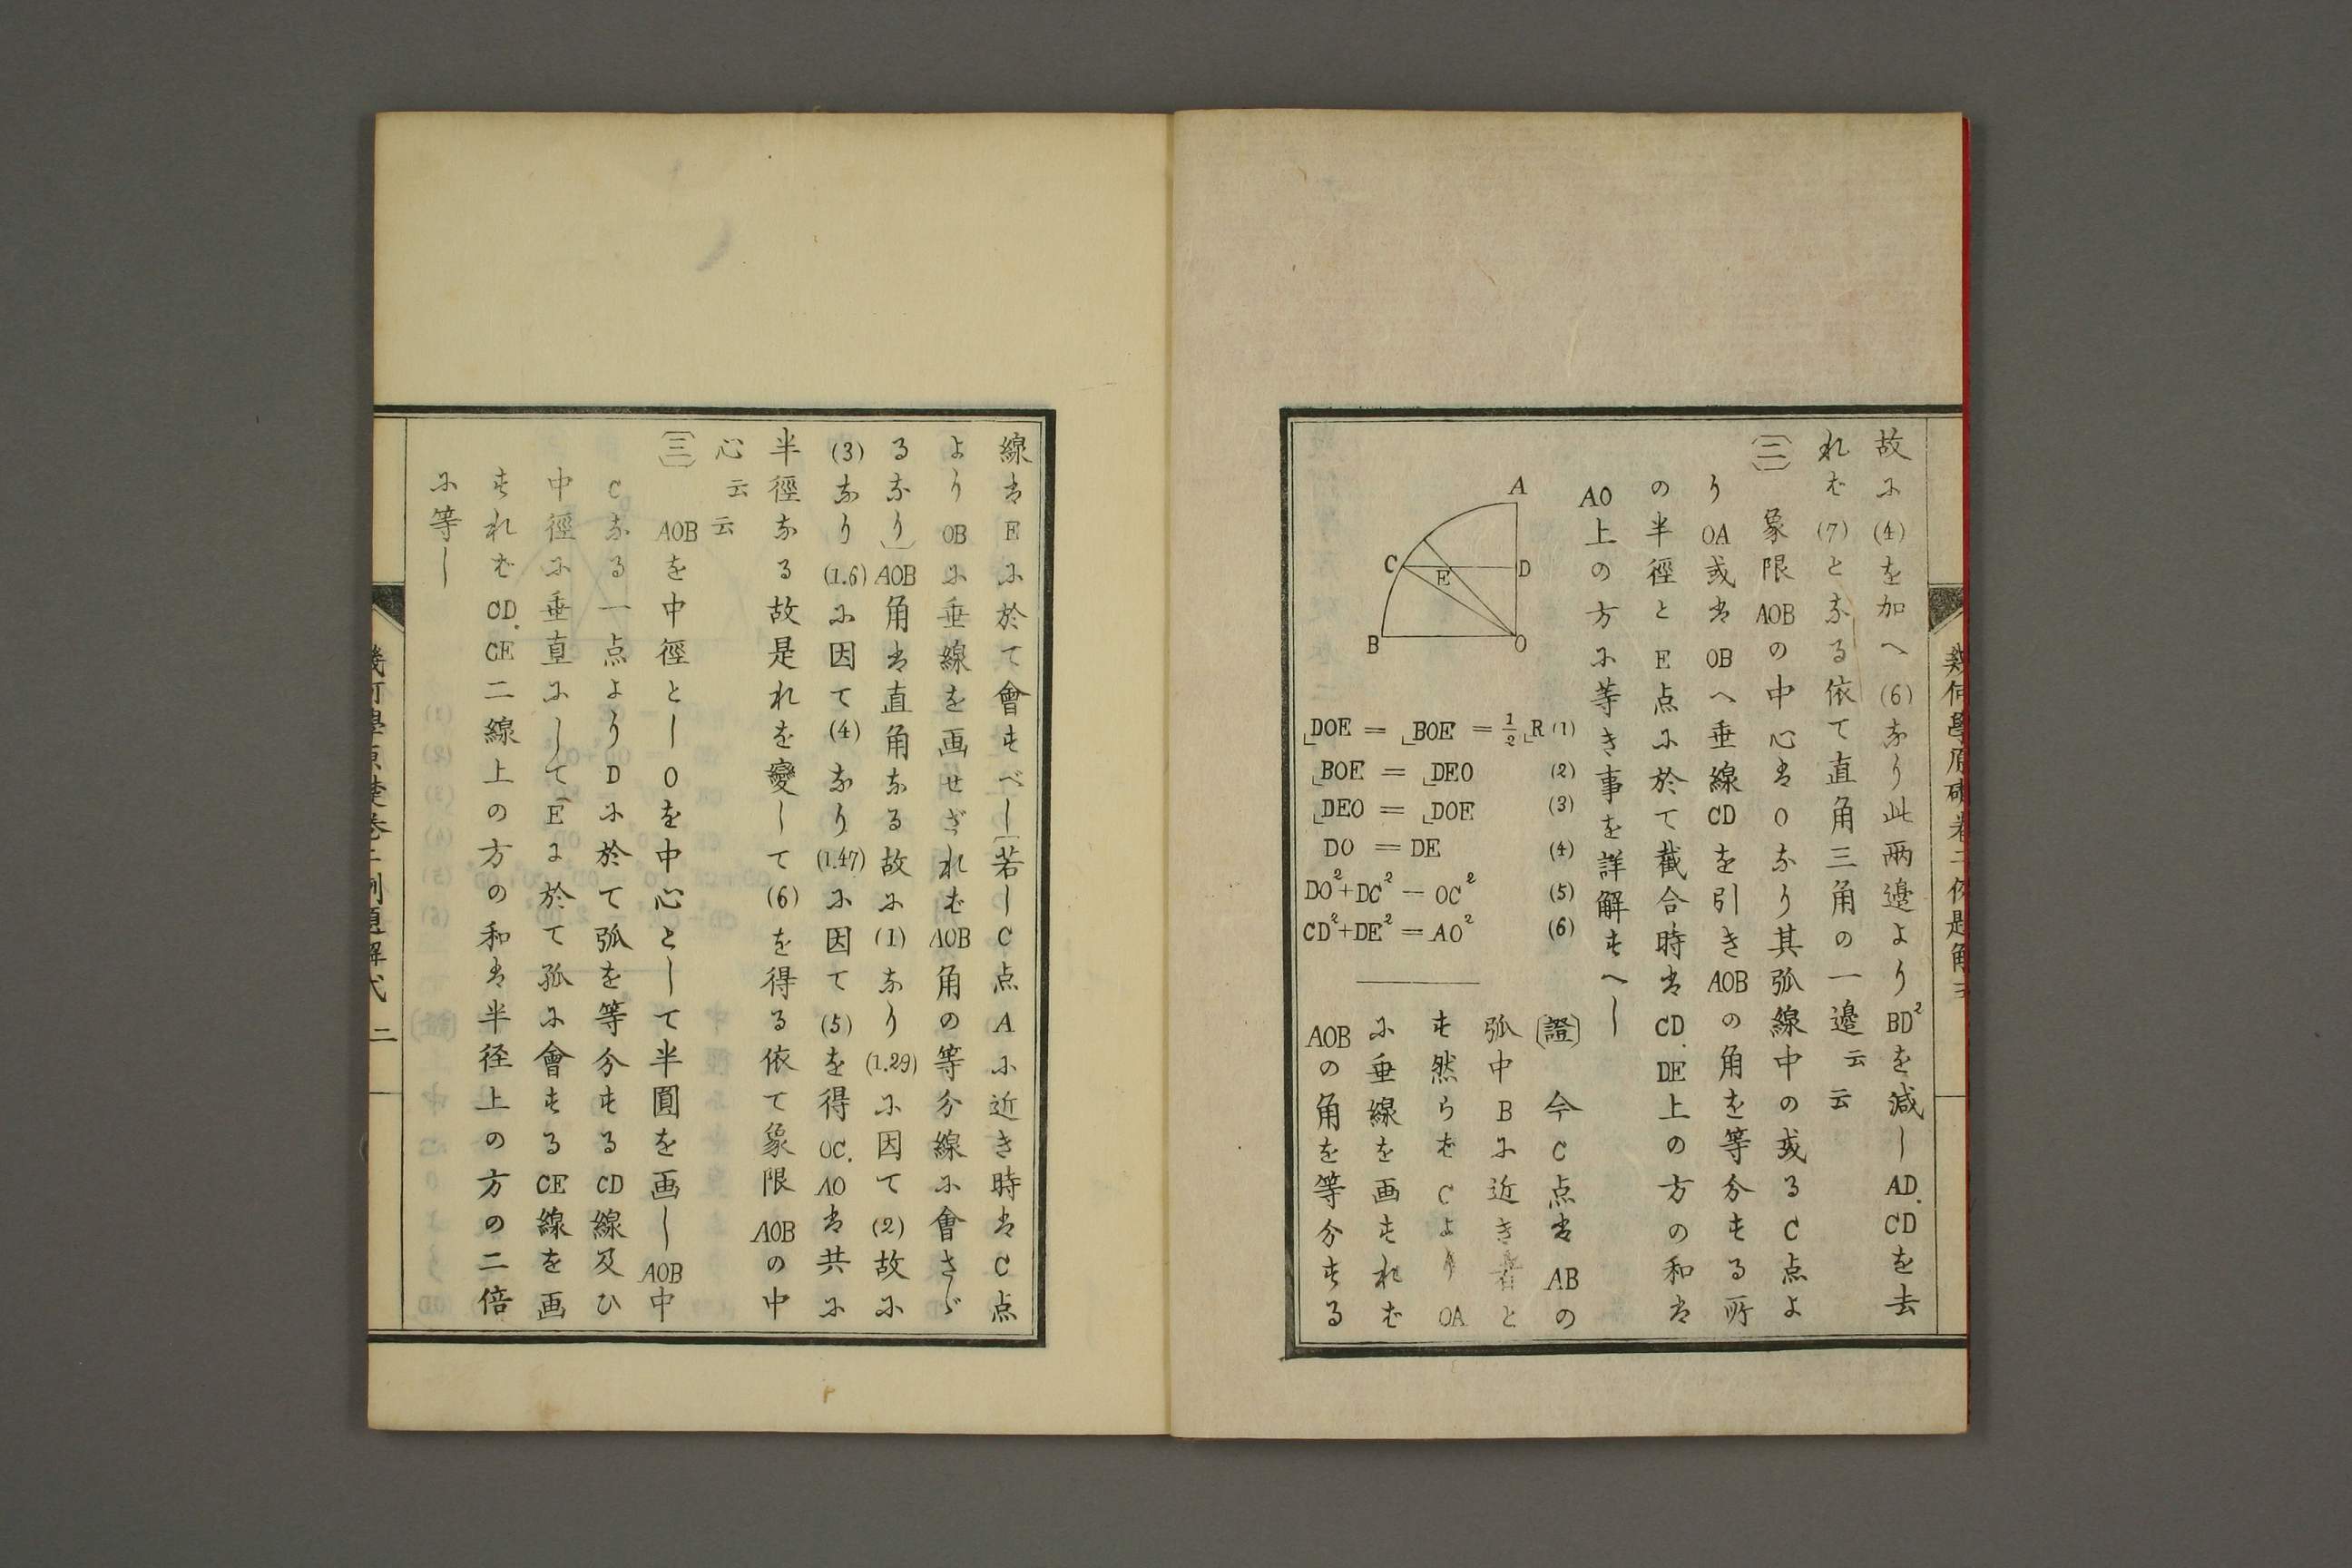 故に(4)を加へ(6)なり此両邊よりBD²を減しAD.CDを去
れば(7)となる依て直角三角の一邊云云
〔二〕 象限AOBの中心はOなり其弧線中の或るC点よ
りOA或はOBへ垂線CDを引きAOBの角を等分する所
の半徑とE点に於て截合時はCD.DE上の方の和は
AO上の方に等き事を詳解すへし
A
C
E
D
B
O
DOE = BOE = 1/2 R (1)
BOE = DEO (2)
DEO = DOE (3)
DO = DE (4)
DO²+DC² = OC² (5)
CD²+DE² = AO² (6)
〔證〕 今C点はABの
弧中Bに近き者と
す然らばCよりOA
に垂線を画すれば
AOBの角を等分する
線はEに於て會すべし〔若しC点Aに近き時はC点
よりOBに垂線を画せざればAOB角の等分線に會さゞ
るなり〕AOB角は直角なる故に(1)なり(1.29)に因て(2)故に
(3)なり(1.6)に因て(4)なり(1.47)に因て(5)を得OC.AOは共に
半徑なる故是れを變して(6)を得る依て象限AOBの中
心云云
〔三〕 AOBを中徑としOを中心として半圓を画しAOB中
Cなる一点よりDに於て弧を等分するCD線及ひ
中徑に垂直にしてEに於て孤に會するCE線を画
すればCD.CE二線上の方の和は半径上の方の二倍
に等し
幾何學原礎巻二例題解式 二